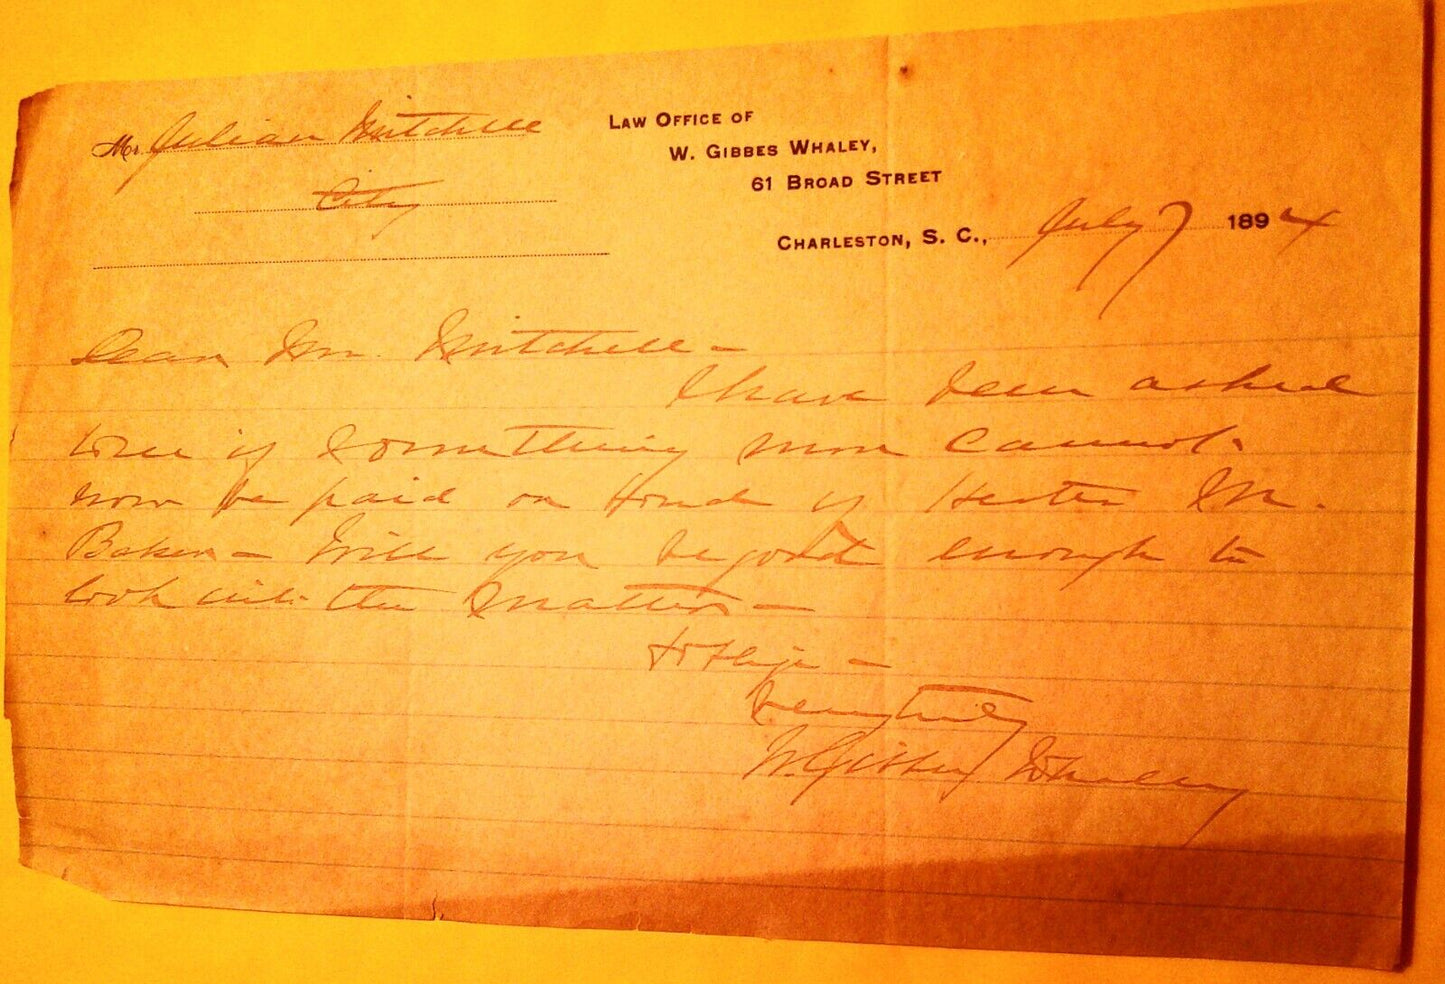 Mr. Julian Mitchell
City
LAW OFFICE OF
W. GIBBES WHALEY,
61 BROAD STREET
CHARLESTON, S. C., July 7 1894
Dear Mr. Mitchell –
I have been asked
to see if something more cannot
now be paid on bond of Hester M.
Baker – Will you be good enough to
look into the matter –
&
Very truly
W. Gibbes Whaley